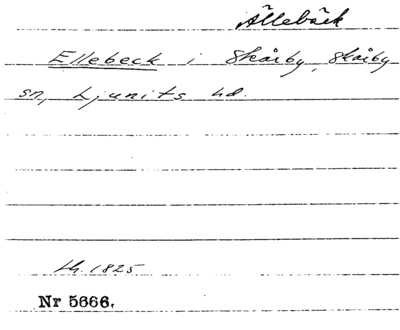 Ällebäck
Ellebeck i Skårby, Skårby
sn, Ljunits hd.
Lh. 1825
Nr 5666.